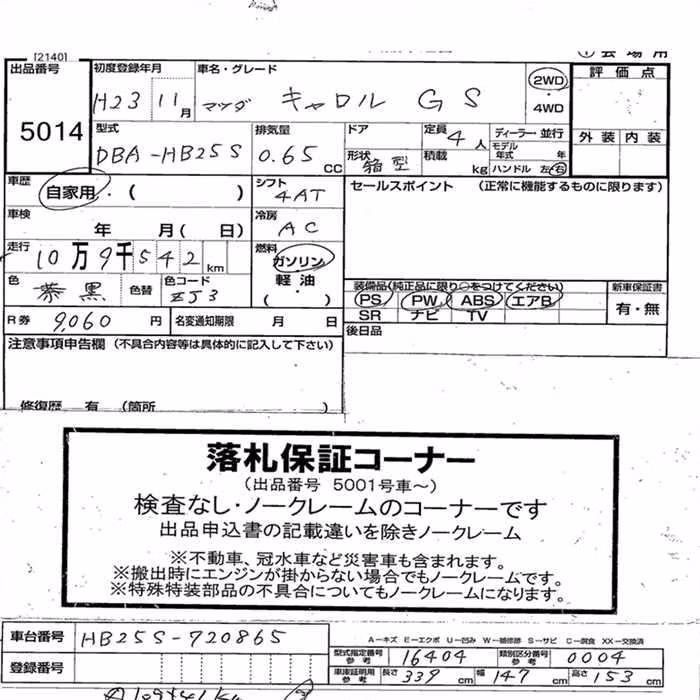 [2140]
① 会場用
出品番号
5014
初度登録年月
H23 11月
車名・グレード
マツダ キャロル GS
2WD
・
4WD
評価点
外装 内装
型式
DBA-HB25S
排気量
0.65 CC
ドア
形状
箱型
定員
4人
積載
kg
ディーラー・並行
モデル年式 年
ハンドル 左・右
車歴
自家用・( )
シフト
4AT
セールスポイント (正常に機能するものに限ります)
車検
年 月( 日)
冷房
AC
走行
10万9千542km
燃料
ガソリン
軽油
(・)
色
黒
色替
色コード
ZJ3
装備品(純正品に限り○をつけてください)
PS PW ABS エアB
SR ナビ TV
新車保証書
有・無
R券 9,060 円
名変通知期限 月 日
後日品
注意事項申告欄 (不具合内容等は具体的に記入して下さい)
修復歴 有 (箇所 )
落札保証コーナー
(出品番号 5001号車~)
検査なし・ノークレームのコーナーです
出品申込書の記載違いを除きノークレーム
※不動車、冠水車など災害車も含まれます。
※搬出時にエンジンが掛からない場合でもノークレームです。
※特殊特装部品の不具合についてもノークレームになります。
車台番号
HB25S-720865
登録番号
A-キズ E-エクボ U-凹み W-補修跡 S-サビ C-腐食 XX-交換済
型式指定番号 参考 16404
類別区分番号 参考 0004
車庫証明用 参考 長さ 339 cm 幅 147 cm 高さ 153 cm